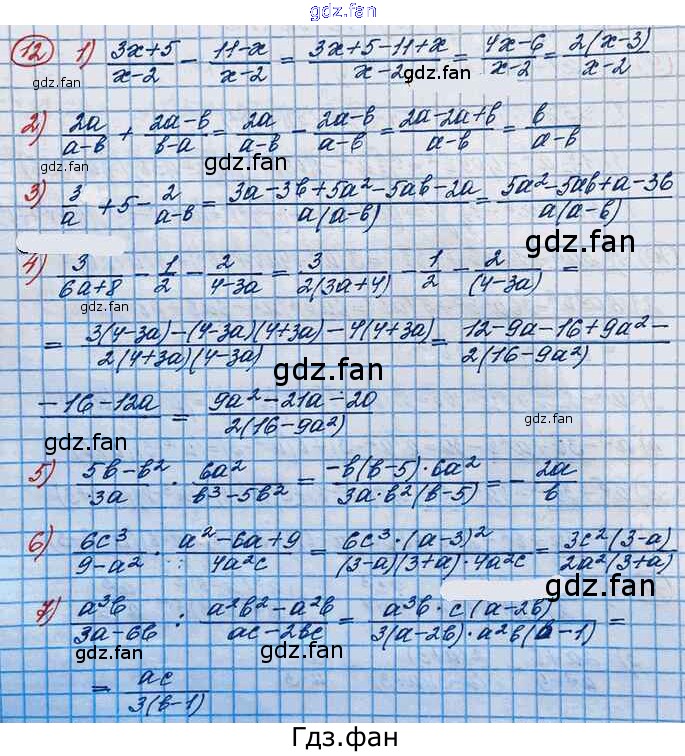 gdz.fan
12 1) (3x+5)/(x-2) - (11-x)/(x-2) = (3x+5-11+x)/(x-2) = (4x-6)/(x-2) = 2(x-3)/(x-2)
gdz.fan gdz.fan gdz.fan
2) 2a/(a-b) + (2a-b)/(b-a) = 2a/(a-b) - (2a-b)/(a-b) = (2a-2a+b)/(a-b) = b/(a-b)
gdz.fan gdz.fan
3) 3/a + 5 - 2/(a-b) = (3a-3b+5a²-5ab-2a)/(a(a-b)) = (5a²-5ab+a-3b)/(a(a-b))
gdz.fan
4) 3/(6a+8) - 1/2 - 2/(4-3a) = 3/(2(3a+4)) - 1/2 - 2/(4-3a) =
gdz.fan gdz.fan
= (3(4-3a)-(4-3a)(4+3a)-4(4+3a))/(2(4+3a)(4-3a)) = (12-9a-16+9a²-)/(2(16-9a²))
gdz.fan
-16-12a = (9a²-21a-20)/(2(16-9a²))
gdz.fan gdz.fan
5) (5b-b²)/3a · 6a²/(b³-5b²) = (-b(b-5)·6a²)/(3a·b²(b-5)) = - 2a/b
gdz.fan
6) 6c³/(9-a²) · (a²-6a+9)/4a²c = (6c³·(a-3)²)/((3-a)(3+a)·4a²c) = 3c²(3-a)/(2a²(3+a))
gdz.fan gdz.fan
7) a³b/(3a-6b) : (a²b²-a²b)/(ac-2bc) = (a³b·c(a-2b))/(3(a-2b)·a²b(b-1)) =
gdz.fan gdz.fan
= ac/(3(b-1))
gdz.fan gdz.fan
Гдз.фан